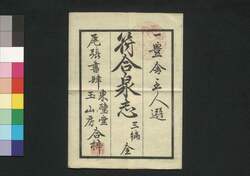 一豊舎主人選
符合泉志 三編 全
尾張書肆 東壁堂 玉山房 合梓